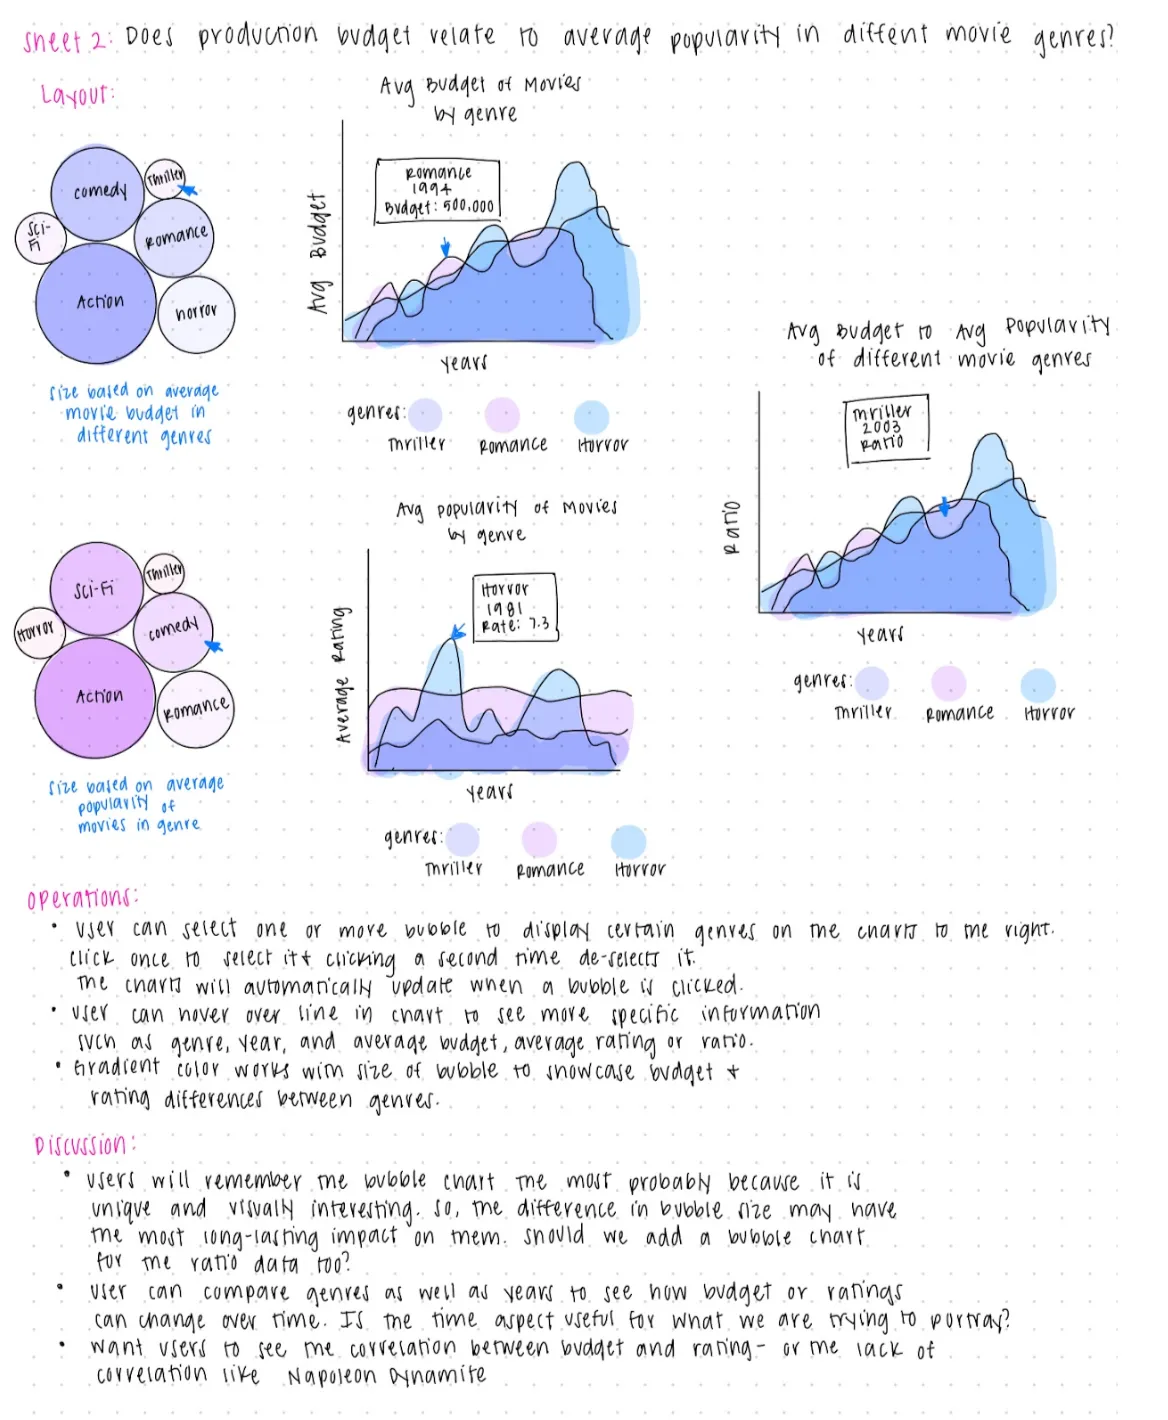 Sheet 2: Does production budget relate to average popularity in diffent movie genres?
Layout:
Avg Budget of Movies
by genre
comedy
Thriller
Sci-
Fi
Romance
Action
horror
size based on average
movie budget in
different genres
Avg Budget
Romance
1994
Budget: 500,000
years
genres:
Thriller
Romance
Horror
Avg Budget to Avg Popularity
of different movie genres
Ratio
Thriller
2003
Ratio
years
genres:
Thriller
Romance
Horror
Sci-Fi
Thriller
Horror
comedy
Action
Romance
size based on average
popularity of
movies in genre
Avg popularity of Movies
by genre
Average Rating
Horror
1981
Rate: 7.3
years
genres:
Thriller
Romance
Horror
Operations:
• User can select one or more bubble to display certain genres on the charts to the right.
click once to select it + clicking a second time de-selects it.
The charts will automatically update when a bubble is clicked.
• User can hover over line in chart to see more specific information
such as genre, year, and average budget, average rating or ratio.
• Gradient color works with size of bubble to showcase budget +
rating differences between genres.
Discussion:
• users will remember the bubble chart the most probably because it is
unique and visually interesting. So, the difference in bubble size may have
the most long-lasting impact on them. Should we add a bubble chart
for the ratio data too?
• User can compare genres as well as years to see how budget or ratings
can change over time. Is the time aspect useful for what we are trying to portray?
• Want users to see the correlation between budget and rating - or the lack of
correlation like Napoleon Dynamite